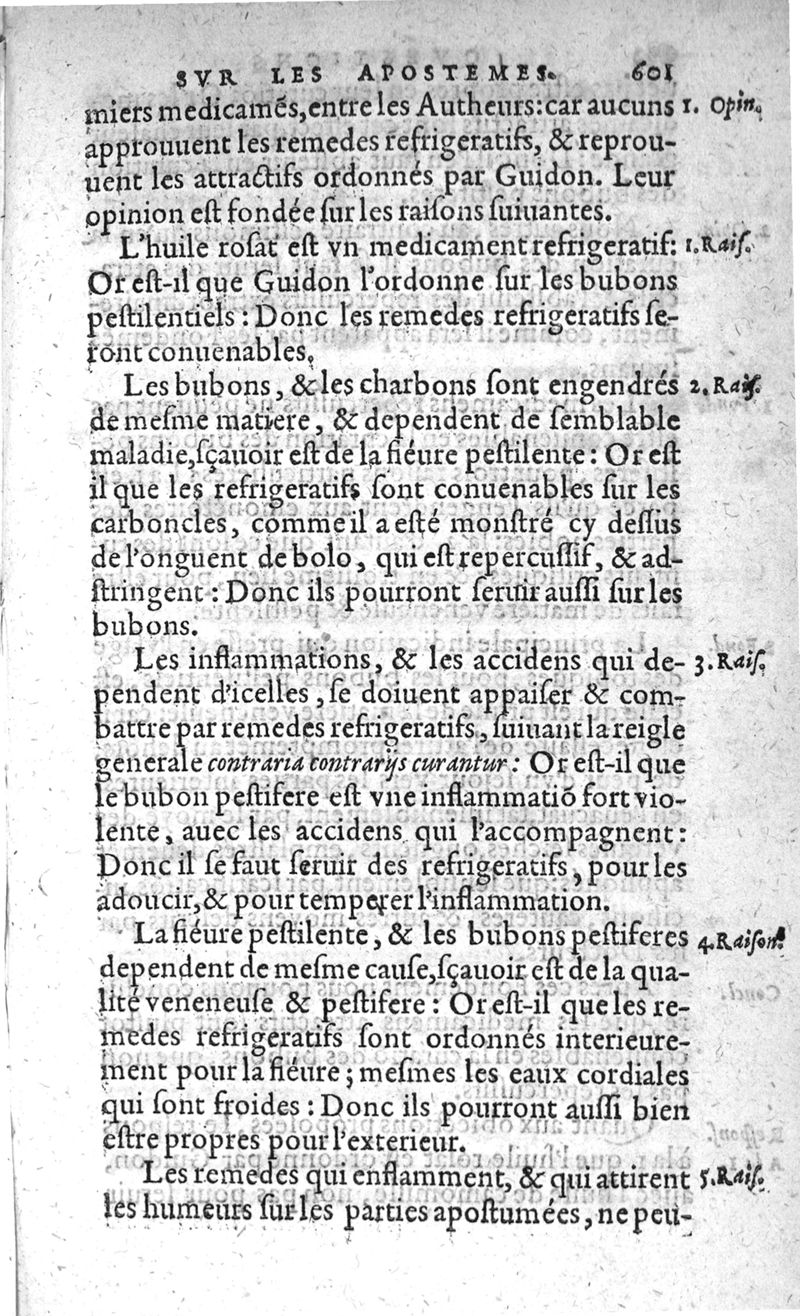 SVR LES APOSTEMES. 601
miers medicamẽs, entre les Autheurs: car aucuns 1. Opin.
approuuent les remedes refrigeratifs, & reprou-
uent les attractifs ordonnés par Guidon. Leur
opinion eſt fondée ſur les raiſons ſuiuantes.
L'huile roſat eſt vn medicament refrigeratif: 1. Raiſ.
Or eſt-il que Guidon l'ordonne ſur les bubons
peſtilentiels: Donc les remedes refrigeratifs ſe-
ront conuenables.
Les bubons, & les charbons ſont engendrés 2. Raiſ.
de meſme matiere, & dependent de ſemblable
maladie, ſçauoir eſt de la fiéure peſtilente: Or eſt
il que les refrigeratifs ſont conuenables ſur les
carboncles, comme il a eſté monſtré cy deſſus
de l'onguent de bolo, qui eſt repercuſſif, & ad-
ſtringent: Donc ils pourront ſeruir auſſi ſur les
bubons.
Les inflammations, & les accidens qui de- 3. Raiſ.
pendent d'icelles, ſe doiuent appaiſer & com-
battre par remedes refrigeratifs, ſuiuant la reigle
generale contraria contrarijs curantur: Or eſt-il que
le bubon peſtifere eſt vne inflammatiõ fort vio-
lente, auec les accidens qui l'accompagnent:
Donc il ſe faut ſeruir des refrigeratifs, pour les
adoucir, & pour temperer l'inflammation.
La fiéure peſtilente, & les bubons peſtiferes 4. Raiſon.
dependent de meſme cauſe, ſçauoir eſt de la qua-
lité veneneuſe & peſtifere: Or eſt-il que les re-
medes refrigeratifs ſont ordonnés interieure-
ment pour la fiéure; meſmes les eaux cordiales
qui ſont froides: Donc ils pourront auſſi bien
eſtre propres pour l'exterieur.
Les remedes qui enflamment, & qui attirent 5. Raiſ.
les humeurs ſur les parties apoſtumées, ne peu-